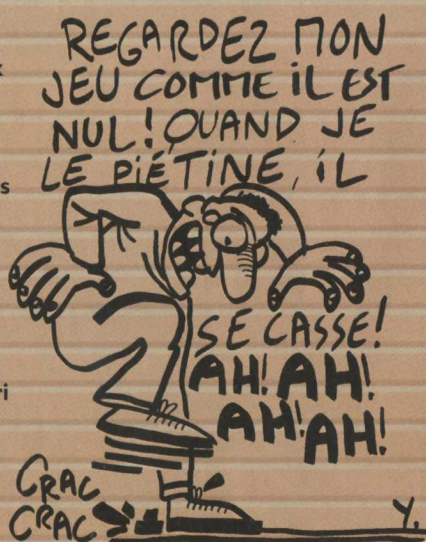 REGARDEZ MON
JEU COMME iL EST
NUL! QUAND JE
LE PIÉTINE, iL
SE CASSE!
AH! AH!
AH! AH!
CRAC
CRAC
Y.